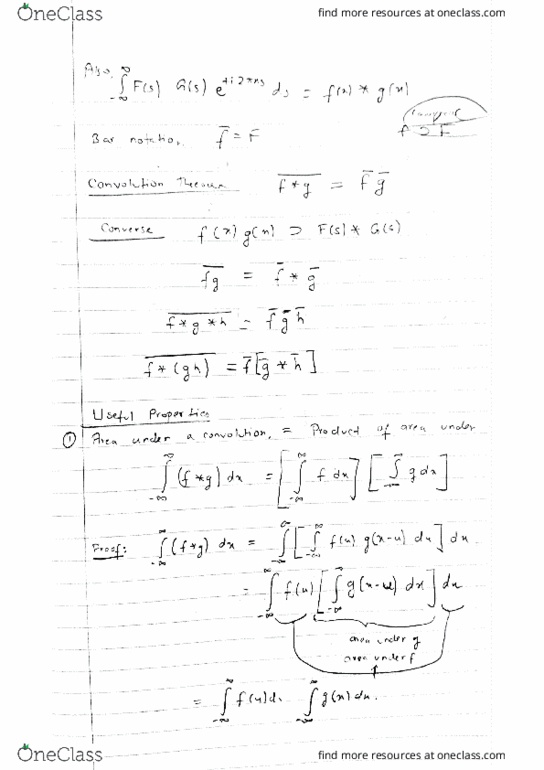 OneClass
find more resources at oneclass.com
Also, ∫_{-∞}^{∞} F(s) G(s) e^{+i2πxs} ds = f(x) * g(x)
f ⊃ F
Bar notation, f̅ = F
Convolution Theorem \overline{f * g} = f̅ g̅
Converse f(x) g(x) ⊃ F(s) * G(s)
\overline{fg} = f̅ * g̅
\overline{f * g * h} = f̅ g̅ h̅
\overline{f * (gh)} = f̅ [g̅ * h̅]
Useful Properties
① Area under a convolution, = Product of area under
∫_{-∞}^{∞} (f * g) dx = [∫_{-∞}^{∞} f dx] [∫_{-∞}^{∞} g dx]
Proof: ∫_{-∞}^{∞} (f * g) dx = ∫_{-∞}^{∞} [∫_{-∞}^{∞} f(u) g(x-u) du] dx.
= ∫_{-∞}^{∞} f(u) [∫_{-∞}^{∞} g(x-u) dx] du
area under g
area under f
= ∫_{-∞}^{∞} f(u) du ∫_{-∞}^{∞} g(x) dx.
OneClass
find more resources at oneclass.com